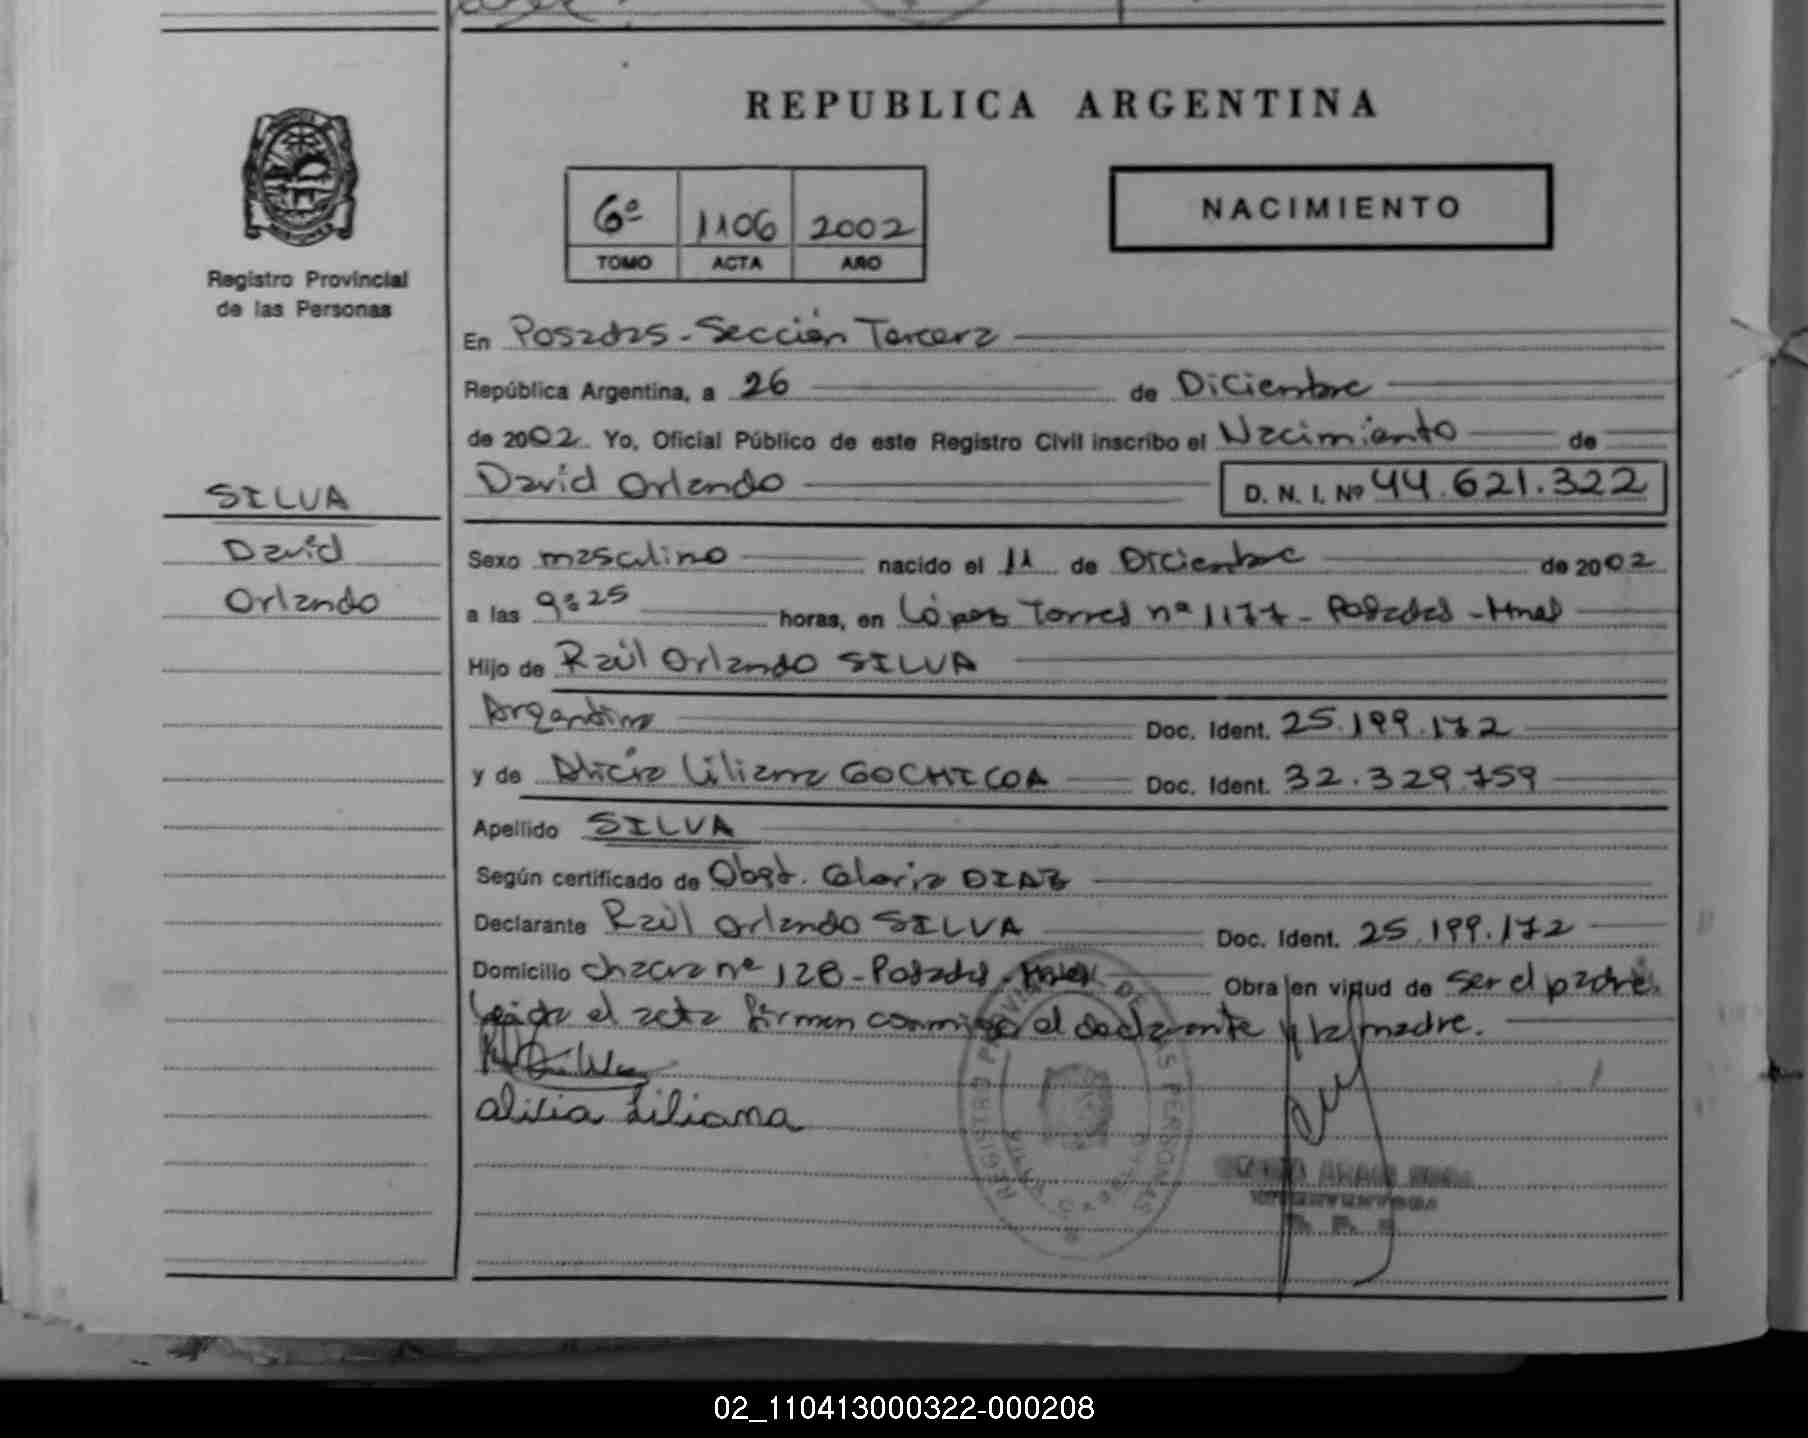 REPUBLICA ARGENTINA
NACIMIENTO
6º 1106 2002
TOMO ACTA AÑO
Registro Provincial
de las Personas
En Posadas - Sección Tercera
República Argentina, a 26 de Diciembre
de 2002. Yo, Oficial Público de este Registro Civil inscribo el Nacimiento de
David Orlando D. N. I. Nº 44.621.322
SILVA
David
Orlando
Sexo masculino nacido el 11 de Diciembre de 2002
a las 9:25 horas, en López Torres nº 1177 - Posadas - Mnes
Hijo de Raúl Orlando SILVA
Argentino Doc. Ident. 25.199.172
y de Alicia Liliana GOCHICOA Doc. Ident. 32.329.759
Apellido SILVA
Según certificado de Obst. Gloria DIAZ
Declarante Raúl Orlando SILVA Doc. Ident. 25.199.172
Domicilio chacra nº 128 - Posadas - Mnes Obra en virtud de ser el padre.
Leida el acta firman conmigo el declarante y la madre.
alisia Liliana
REGISTRO PROVINCIAL DE LAS PERSONAS
02_110413000322-000208